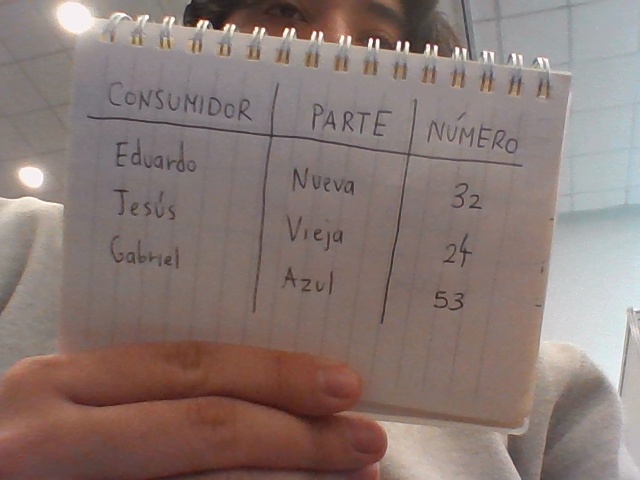 CONSUMIDOR PARTE NÚMERO
Eduardo Nueva 32
Jesús Vieja 24
Gabriel Azul 53